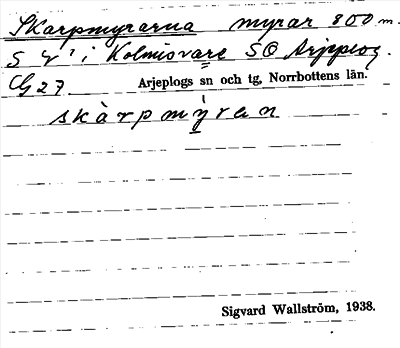 Skarpmyrarna myrar 800 m.
S i Kolmisvare SO Arjeplog.
G 27. Arjeplogs sn och tg, Norrbottens län.
skàrpmý̱ran
Sigvard Wallström, 1938.